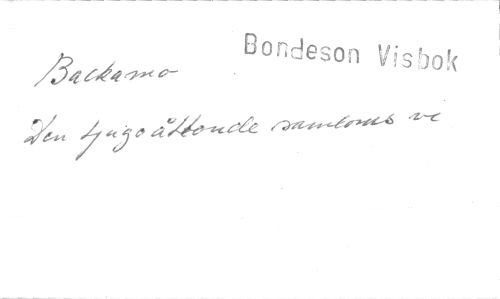 Bondeson Visbok
Backamo
Den tjugoåttonde samloms vi